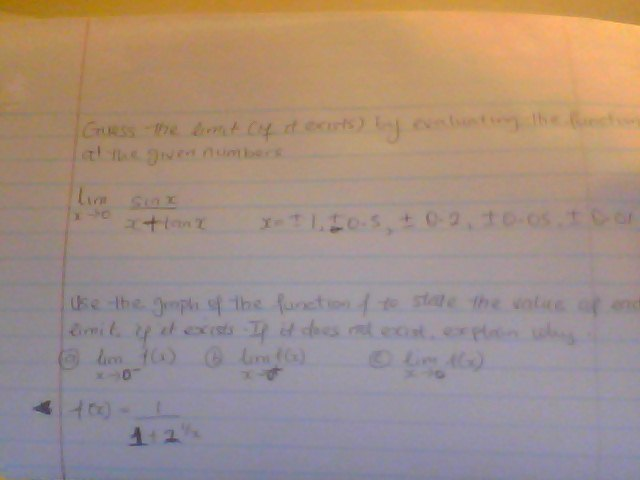 Guess the limit (if it exists) by evaluating the function
at the given numbers
lim x→0 sin x / x + tan x x = ±1, ±0.5, ±0.2, ±0.05, ±0.01
Use the graph of the function f to state the value of each
limit, if it exists. If it does not exist, explain why.
(a) lim x→0⁻ f(x) (b) lim x→0⁺ f(x) (c) lim x→0 f(x)
f(x) = 1 / 1 + 2^1/x